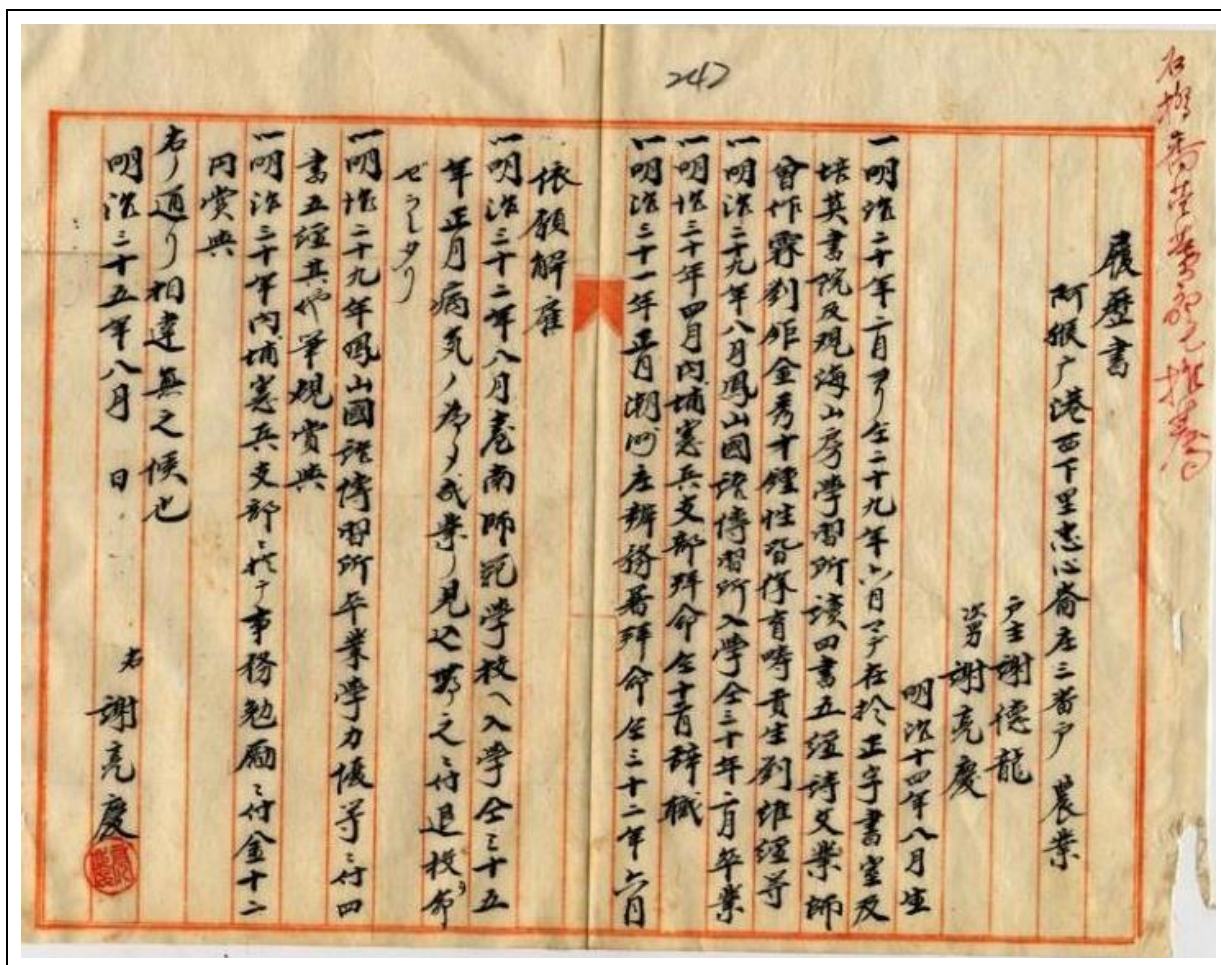 247
履歷書
阿猴廳港西下里忠心崙庄三番戶 農業
戶主謝德龍
次男謝亮慶
明治十四年八月生
一明治二十年二月ヨリ仝二十九年六月マデ在於正字書室及
培英書院及観海山房學習所讀四書五經詩文業師
曾作霖劉作金秀才鍾性皆係有時貢生劉維經等
一明治二十九年八月鳳山國語傳習所入學仝三十年二月卒業
一明治三十年四月内埔憲兵支部拜命仝 辭職
一明治三十一年正月潮州庄辦務署拜命仝三十二年六月
依願解雇
一明治三十二年八月臺南師範學校ヘ入學仝三十五
年正月病気ノ為メ成業ノ見込 之ニ付退校ヲ命
ゼラレタリ
一明治二十九年鳳山國語傳習所卒業學力優等ニ付四
書五經其他筆硯賞與
一明治三十年内埔憲兵支部ニ於テ事務勉勵ニ付金十二
円賞與
右ノ通リ相違無之候也
明治三十五年八月 日
右 謝亮慶